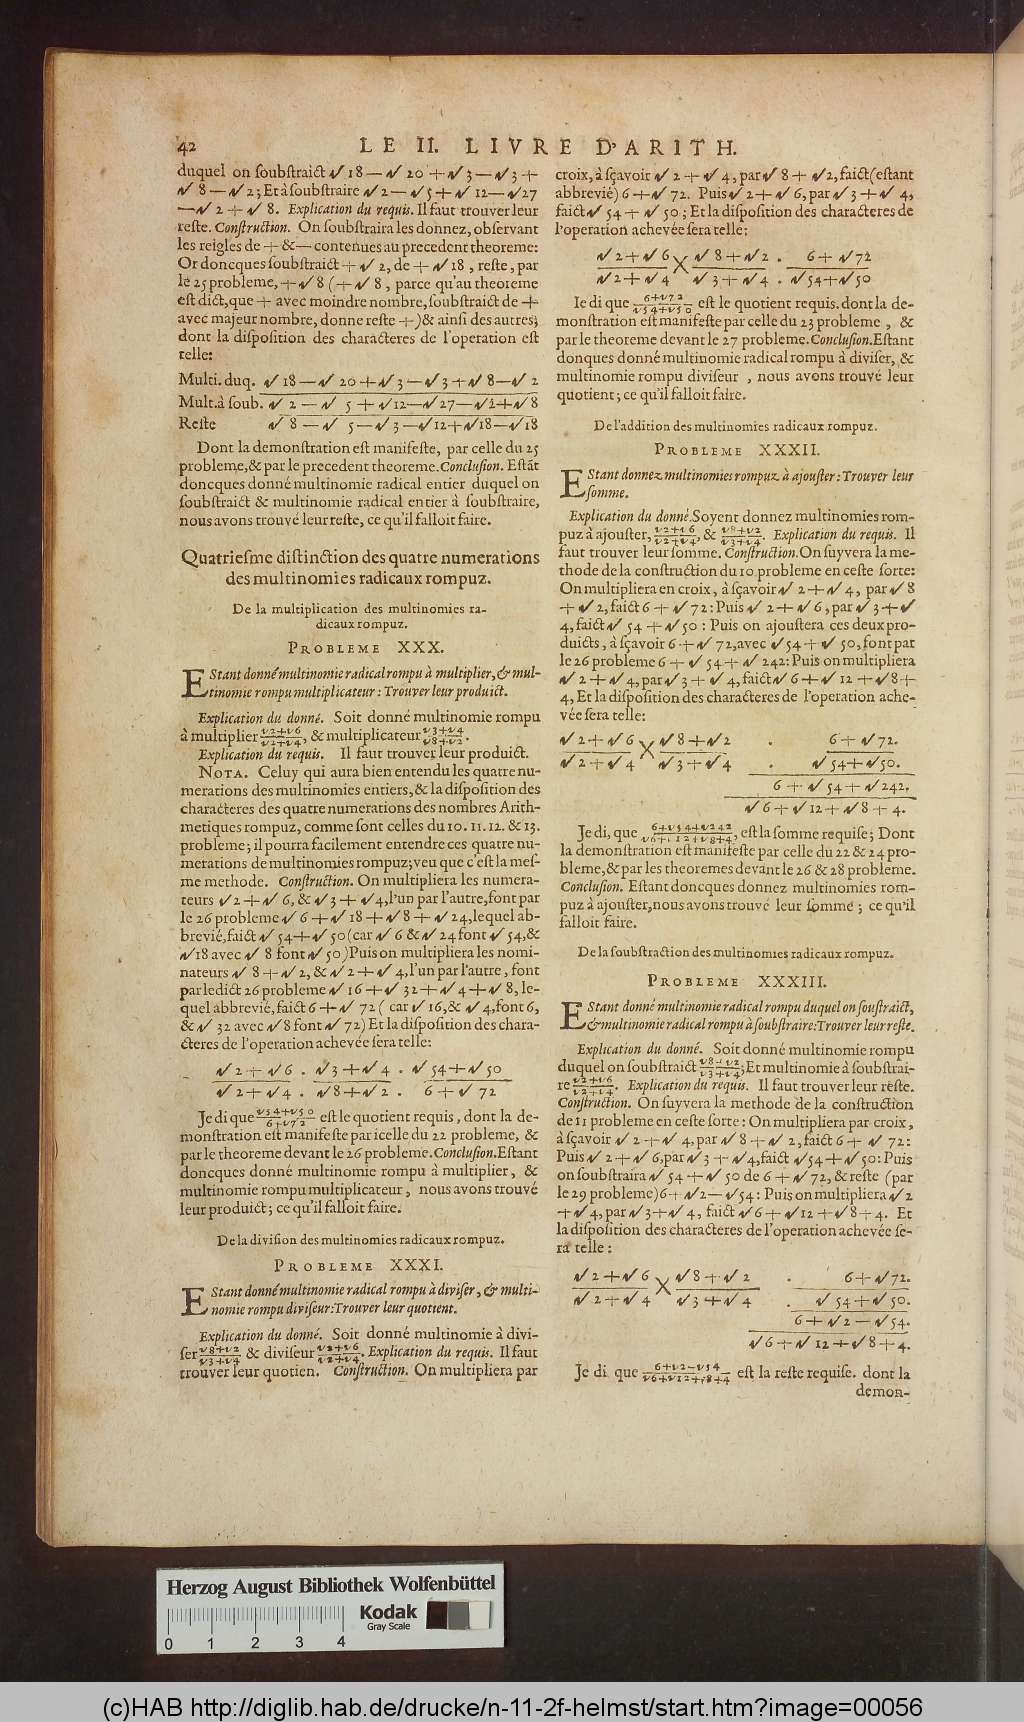 42
LE II. LIVRE D'ARITH.
duquel on soubstraict √ 18 — √ 20 + √ 3 — √ 3 +
√ 8 — √ 2; Et à soubstraire √ 2 — √ 5 + √ 12 — √ 27
— √ 2 + √ 8. Explication du requis. Il faut trouver leur
reste. Construction. On soubstraira les donnez, observant
les reigles de + & — contenues au precedent theoreme:
Or doncques soubstraict + √ 2, de + √ 18, reste, par
le 25 probleme, + √ 8 (+ √ 8, parce qu'au theoreme
est dict, que + avec moindre nombre, soubstraict de +
avec majeur nombre, donne reste +) & ainsi des autres;
dont la disposition des characteres de l'operation est
telle:
Multi. duq. √ 18 — √ 20 + √ 3 — √ 3 + √ 8 — √ 2
Mult. à soub. √ 2 — √ 5 + √ 12 — √ 27 — √ 2 + √ 8
Reste √ 8 — √ 5 — √ 3 — √ 12 + √ 18 — √ 18
Dont la demonstration est manifeste, par celle du 25
probleme, & par le precedent theoreme. Conclusion. Estāt
doncques donné multinomie radical entier duquel on
soubstraict & multinomie radical entier à soubstraire,
nous avons trouvé leur reste, ce qu'il falloit faire.
Quatriesme distinction des quatre numerations
des multinomies radicaux rompuz.
De la multiplication des multinomies ra-
dicaux rompuz.
PROBLEME XXX.
EStant donné multinomie radical rompu à multiplier, & mul-
tinomie rompu multiplicateur: Trouver leur produict.
Explication du donné. Soit donné multinomie rompu
à multiplier √2+√6/√2+√4, & multiplicateur √3+√4/√8+√2.
Explication du requis. Il faut trouver leur produict.
NOTA. Celuy qui aura bien entendu les quatre nu-
merations des multinomies entiers, & la disposition des
characteres des quatre numerations des nombres Arith-
metiques rompuz, comme sont celles du 10. 11. 12. & 13.
probleme; il pourra facilement entendre ces quatre nu-
merations de multinomies rompuz; veu que c'est la mes-
me methode. Construction. On multipliera les numera-
teurs √ 2 + √ 6, & √ 3 + √ 4, l'un par l'autre, font par
le 26 probleme √ 6 + √ 18 + √ 8 + √ 24, lequel ab-
brevié, faict √ 54 + √ 50 (car √ 6 & √ 24 font √ 54, &
√ 18 avec √ 8 font √ 50) Puis on multipliera les nomi-
nateurs √ 8 + √ 2, & √ 2 + √ 4, l'un par l'autre, font
par ledict 26 probleme √ 16 + √ 32 + √ 4 + √ 8, le-
quel abbrevié, faict 6 + √ 72 ( car √ 16, & √ 4, font 6,
& √ 32 avec √ 8 font √ 72) Et la disposition des chara-
cteres de l'operation achevée sera telle:
√ 2 + √ 6 . √ 3 + √ 4 . √ 54 + √ 50
√ 2 + √ 4 . √ 8 + √ 2 . 6 + √ 72
Je di que √54+√50/6+√72 est le quotient requis, dont la de-
monstration est manifeste par icelle du 22 probleme, &
par le theoreme devant le 26 probleme. Conclusion. Estant
doncques donné multinomie rompu à multiplier, &
multinomie rompu multiplicateur, nous avons trouvé
leur produict; ce qu'il falloit faire.
De la division des multinomies radicaux rompuz.
PROBLEME XXXI.
EStant donné multinomie radical rompu à diviser, & multi-
nomie rompu diviseur: Trouver leur quotient.
Explication du donné. Soit donné multinomie à divi-
ser √8+√2/√3+√4 & diviseur √2+√6/√2+√4. Explication du requis. Il faut
trouver leur quotien. Construction. On multipliera par
croix, à sçavoir √ 2 + √ 4, par √ 8 + √ 2, faict (estant
abbrevié) 6 + √ 72. Puis √ 2 + √ 6, par √ 3 + √ 4,
faict √ 54 + √ 50; Et la disposition des characteres de
l'operation achevée sera telle:
√ 2 + √ 6 X √ 8 + √ 2 . 6 + √ 72
√ 2 + √ 4 √ 3 + √ 4 . √ 54 + √ 50
Je di que 6+√72/√54+√50 est le quotient requis. dont la de-
monstration est manifeste par celle du 23 probleme, &
par le theoreme devant le 27 probleme. Conclusion. Estant
donques donné multinomie radical rompu à diviser, &
multinomie rompu diviseur, nous avons trouvé leur
quotient; ce qu'il falloit faire.
De l'addition des multinomies radicaux rompuz.
PROBLEME XXXII.
EStant donnez multinomies rompuz à ajouster: Trouver leur
somme.
Explication du donné. Soyent donnez multinomies rom-
puz à ajouster, √2+√6/√2+√4, & √8+√2/√3+√4. Explication du requis. Il
faut trouver leur somme. Construction. On suyvera la me-
thode de la construction du 10 probleme en ceste sorte:
On multipliera en croix, à sçavoir √ 2 + √ 4, par √ 8
+ √ 2, faict 6 + √ 72: Puis √ 2 + √ 6, par √ 3 + √
4, faict √ 54 + √ 50: Puis on ajoustera ces deux pro-
duicts, à sçavoir 6 + √ 72, avec √ 54 + √ 50, font par
le 26 probleme 6 + √ 54 + √ 242: Puis on multipliera
√ 2 + √ 4, par √ 3 + √ 4, faict √ 6 + √ 12 + √ 8 +
4, Et la disposition des characteres de l'operation ache-
vée sera telle:
√ 2 + √ 6 X √ 8 + √ 2 . 6 + √ 72.
√ 2 + √ 4 √ 3 + √ 4 . √ 54 + √ 50.
6 + √ 54 + √ 242.
√ 6 + √ 12 + √ 8 + 4.
Je di, que 6+√54+√242/√6+√12+√8+4, est la somme requise; Dont
la demonstration est manifeste par celle du 22 & 24 pro-
bleme, & par les theoremes devant le 26 & 28 probleme.
Conclusion. Estant doncques donnez multinomies rom-
puz à ajouster, nous avons trouvé leur somme; ce qu'il
falloit faire.
De la soubstraction des multinomies radicaux rompuz.
PROBLEME XXXIII.
EStant donné multinomie radical rompu duquel on soustraict,
& multinomie radical rompu à soubstraire: Trouver leur reste.
Explication du donné. Soit donné multinomie rompu
duquel on soubstraict √8+√2/√3+√4; Et multinomie à soubstrai-
re √2+√6/√2+√4. Explication du requis. Il faut trouver leur reste.
Construction. On suyvera la methode de la construction
de 11 probleme en ceste sorte: On multipliera par croix,
à sçavoir √ 2 + √ 4, par √ 8 + √ 2, faict 6 + √ 72:
Puis √ 2 + √ 6, par √ 3 + √ 4, faict √ 54 + √ 50: Puis
on soubstraira √ 54 + √ 50 de 6 + √ 72, & reste (par
le 29 probleme) 6 + √ 2 — √ 54: Puis on multipliera √ 2
+ √ 4, par √ 3 + √ 4, faict √ 6 + √ 12 + √ 8 + 4. Et
la disposition des characteres de l'operation achevée se-
ra telle:
√ 2 + √ 6 X √ 8 + √ 2 . 6 + √ 72.
√ 2 + √ 4 √ 3 + √ 4 . √ 54 + √ 50.
6 + √ 2 — √ 54.
√ 6 + √ 12 + √ 8 + 4.
Je di que 6+√2—√54/√6+√12+√8+4 est la reste requise. dont la
demon-
Herzog August Bibliothek Wolfenbüttel
Kodak
Gray Scale
0 1 2 3 4
(c)HAB http://diglib.hab.de/drucke/n-11-2f-helmst/start.htm?image=00056